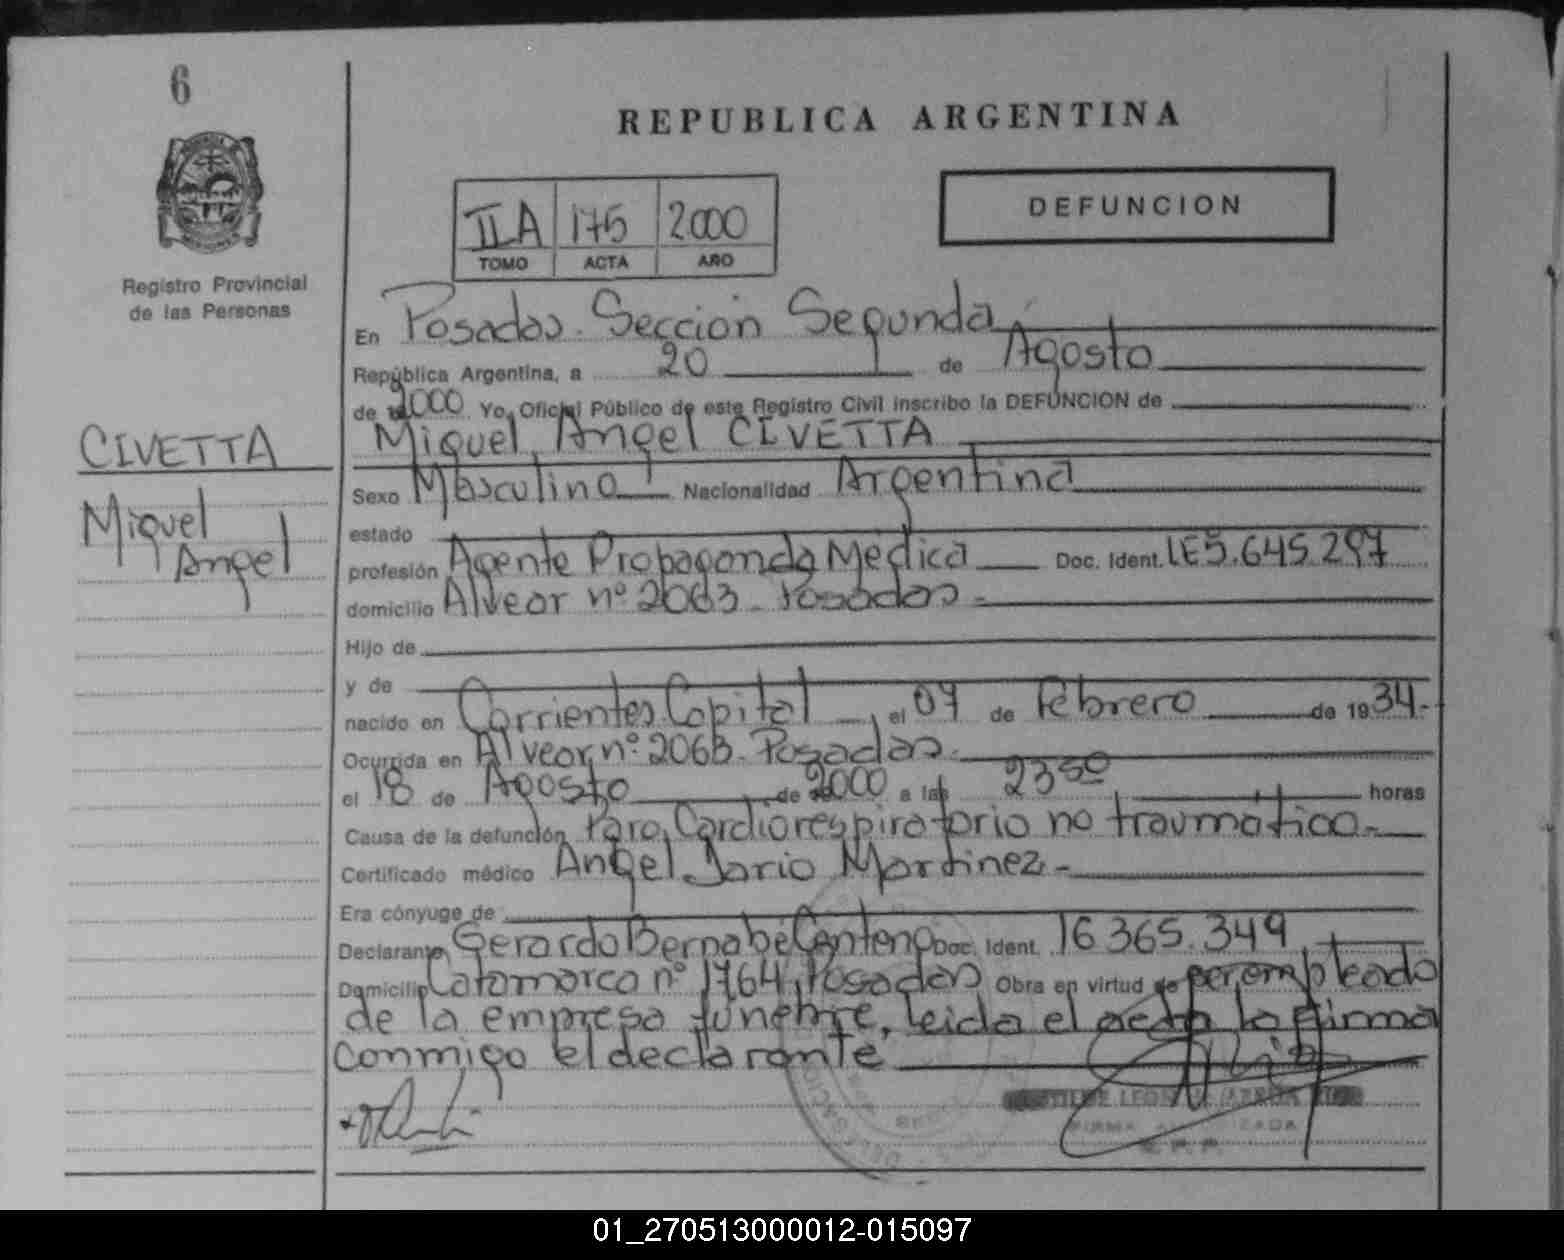 6
REPUBLICA ARGENTINA
IIA 175 2.000
TOMO ACTA AÑO
DEFUNCION
Registro Provincial
de las Personas
En Posadas. Sección Segunda
República Argentina, a 20 de Agosto
de 2000 Yo, Oficial Público de este Registro Civil inscribo la DEFUNCION de
CIVETTA
Miguel Angel
Miguel Angel CIVETTA
Sexo Masculino Nacionalidad Argentina
estado
profesión Agente Propaganda Medica Doc. Ident. LE5.645.297
domicilio Alvear nº 2063 - Posadas -
Hijo de
y de
nacido en Corrientes Capital, el 07 de Febrero de 1934.-
Ocurrida en Alvear nº 2063 - Posadas -
el 18 de Agosto de 2000 a las 23 50 horas
Causa de la defunción Paro Cardiorespiratorio no traumático.-
Certificado médico Angel Dario Martinez -
Era cónyuge de
Declarante Gerardo Bernabé Centeno Doc. Ident. 16 365.349
Domicilio Catamarca nº 1764, Posadas Obra en virtud de ser empleado
de la empresa fúnebre, leida el acta la firma
conmigo el declarante
FIRMA AUTORIZADA
01_270513000012-015097